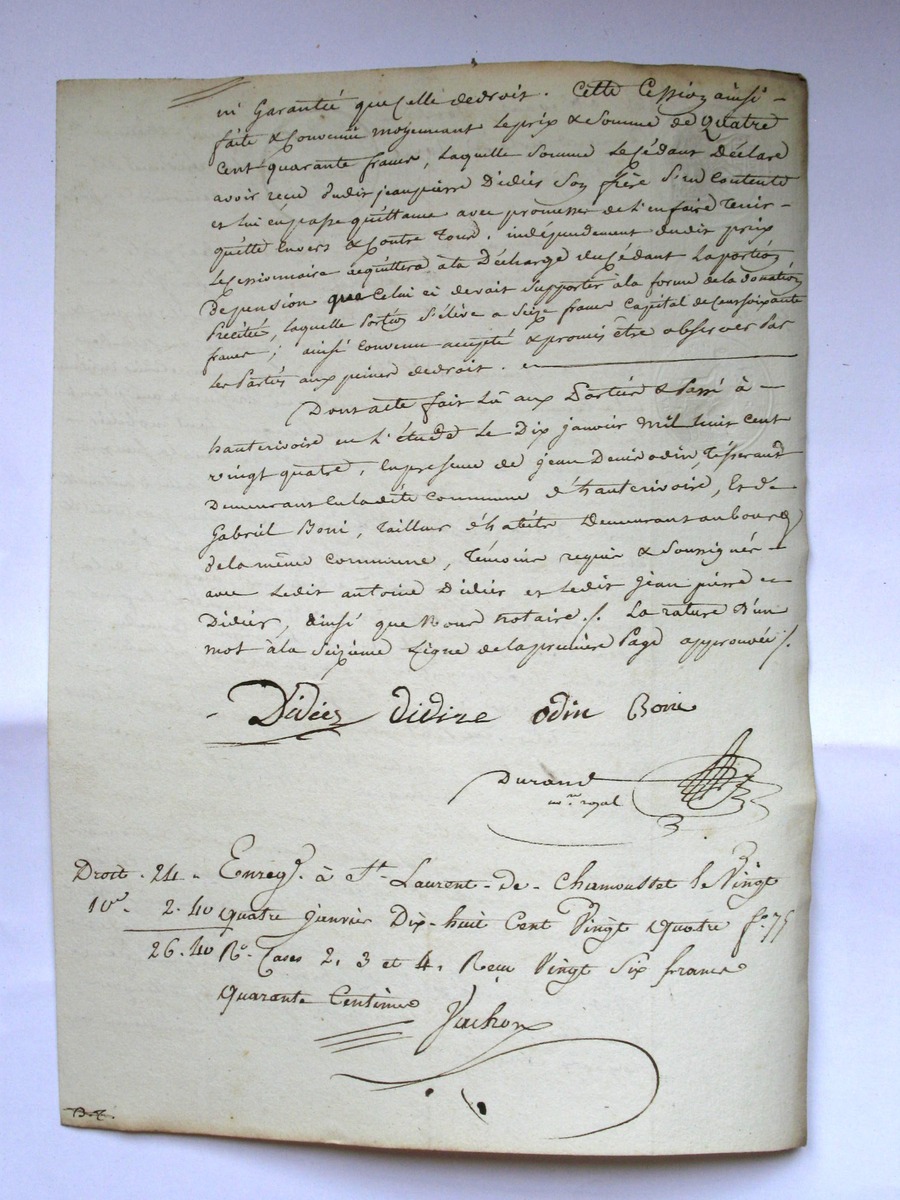 ni Garantié que Celle de droit. Cette Cession ainsi -
faite & Convenue moyennant le prix & Somme de Quatre
Cent quarante francs, laquelle Somme le Cédant Déclare
avoir reçu dudit jean pierre Didier Son frère S'en Contente
et lui en passe quittance avec promesse de l'en faire tenir -
quitte Envers & Contre Tous. indépendemment dudit prix
le Cessionnaire acquittera à la Décharge du Cédant la portion
de pension que Celui ci devait Supporter à la forme de la donation
Précitée, laquelle Portion S'élève a Seize francs Capital de Cent soixante
francs; ainsi Convenu accepté & promis être observer Par
les Parties aux peines de droit.
Dont acte fait lû aux Parties & Passé à -
hauterivoire en l'étude le Dix janvier Mil huit cent
vingt quatre, En presence de jean Denis odin, Tisserand
Demeurant En ladite commune d'hauterivoire, Et de
Gabriel Boni, Tailleur d'habits Demeurant au bourg
de la même commune, Témoins requis & Soussignés -
avec ledit antoine Didier et ledit jean pierre
Didier, ainsi que Nous notaire ./. La rature d'un
mot à la Seizième Ligne de la première Page approuvée ./.
Didier didire odin Boni
Durand
nre. royal
Droit . 24 - Enregé. à St. Laurent-de-Chamousset le Vingt
10e. 2.40 quatre janvier Dix-huit Cent Vingt quatre fo. 75
26.40 Ro. Cases 2. 3 et 4. Reçu Vingt Six francs
quarante Centimes Vachon